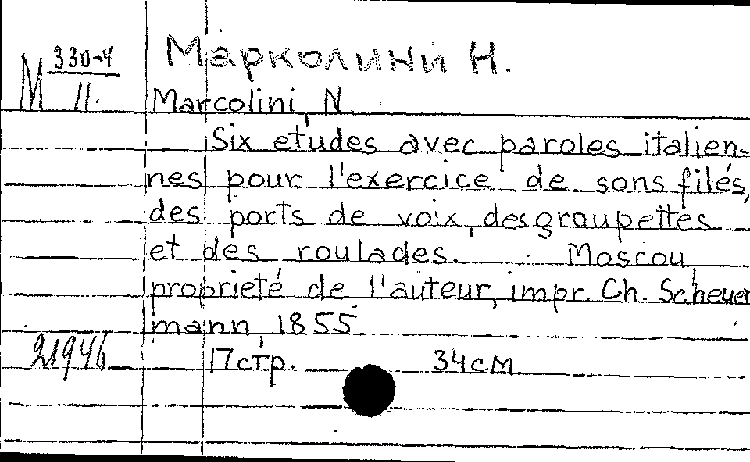 М 330-4
11.
Марколини Н.
Marcolini, N
Six études avec paroles italien-
nes pour l'exercice de sons filés,
des ports de voix, des groupettes
et des roulades. Moscou,
proprieté de l'auteur, impr. Ch. Scheuer
mann, 1855
21946 17 стр. 34 см